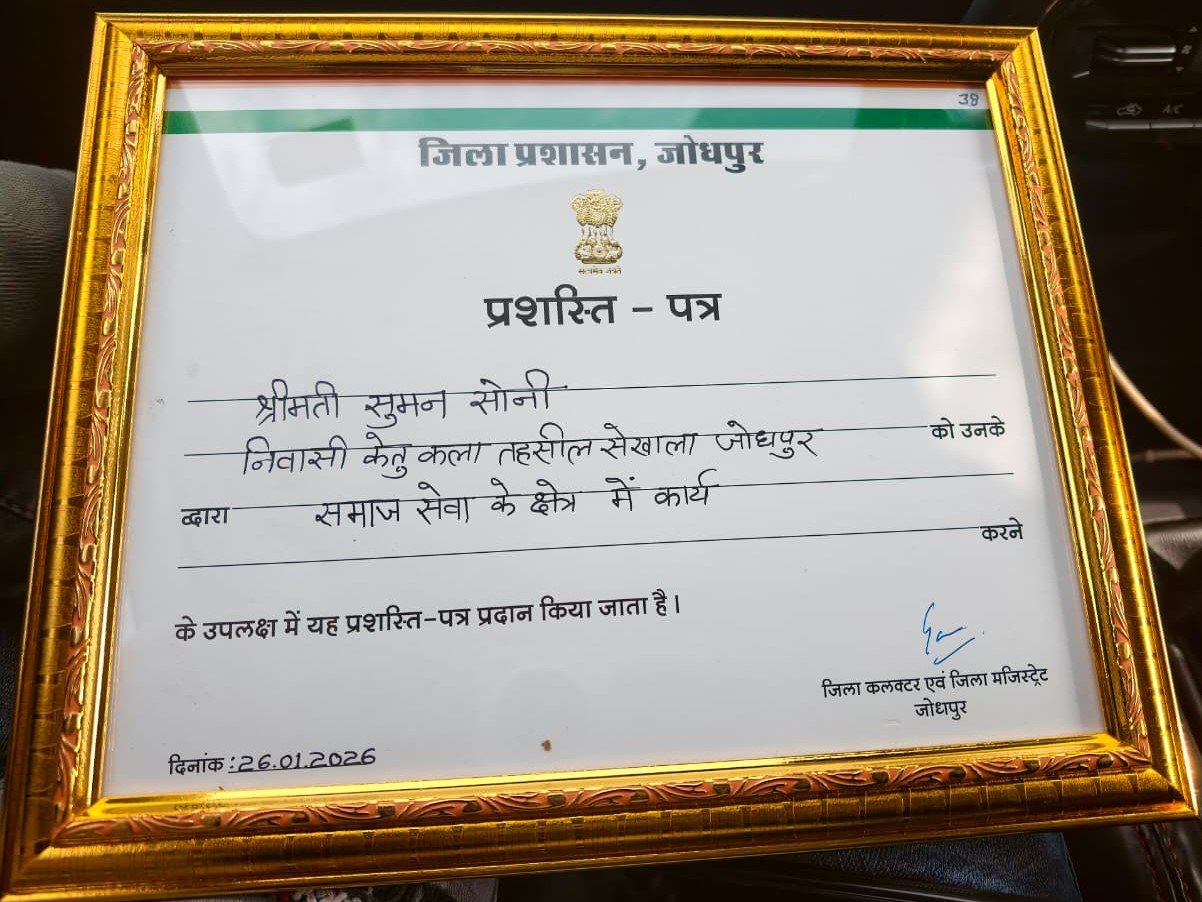 38
जिला प्रशासन, जोधपुर
सत्यमेव जयते
प्रशस्ति - पत्र
श्रीमती सुमन सोनी
निवासी केतु कला तहसील सेखाला जोधपुर को उनके
द्वारा समाज सेवा के क्षेत्र में कार्य
करने
के उपलक्ष में यह प्रशस्ति-पत्र प्रदान किया जाता है।
जिला कलक्टर एवं जिला मजिस्ट्रेट
जोधपुर
दिनांक : 26.01.2026